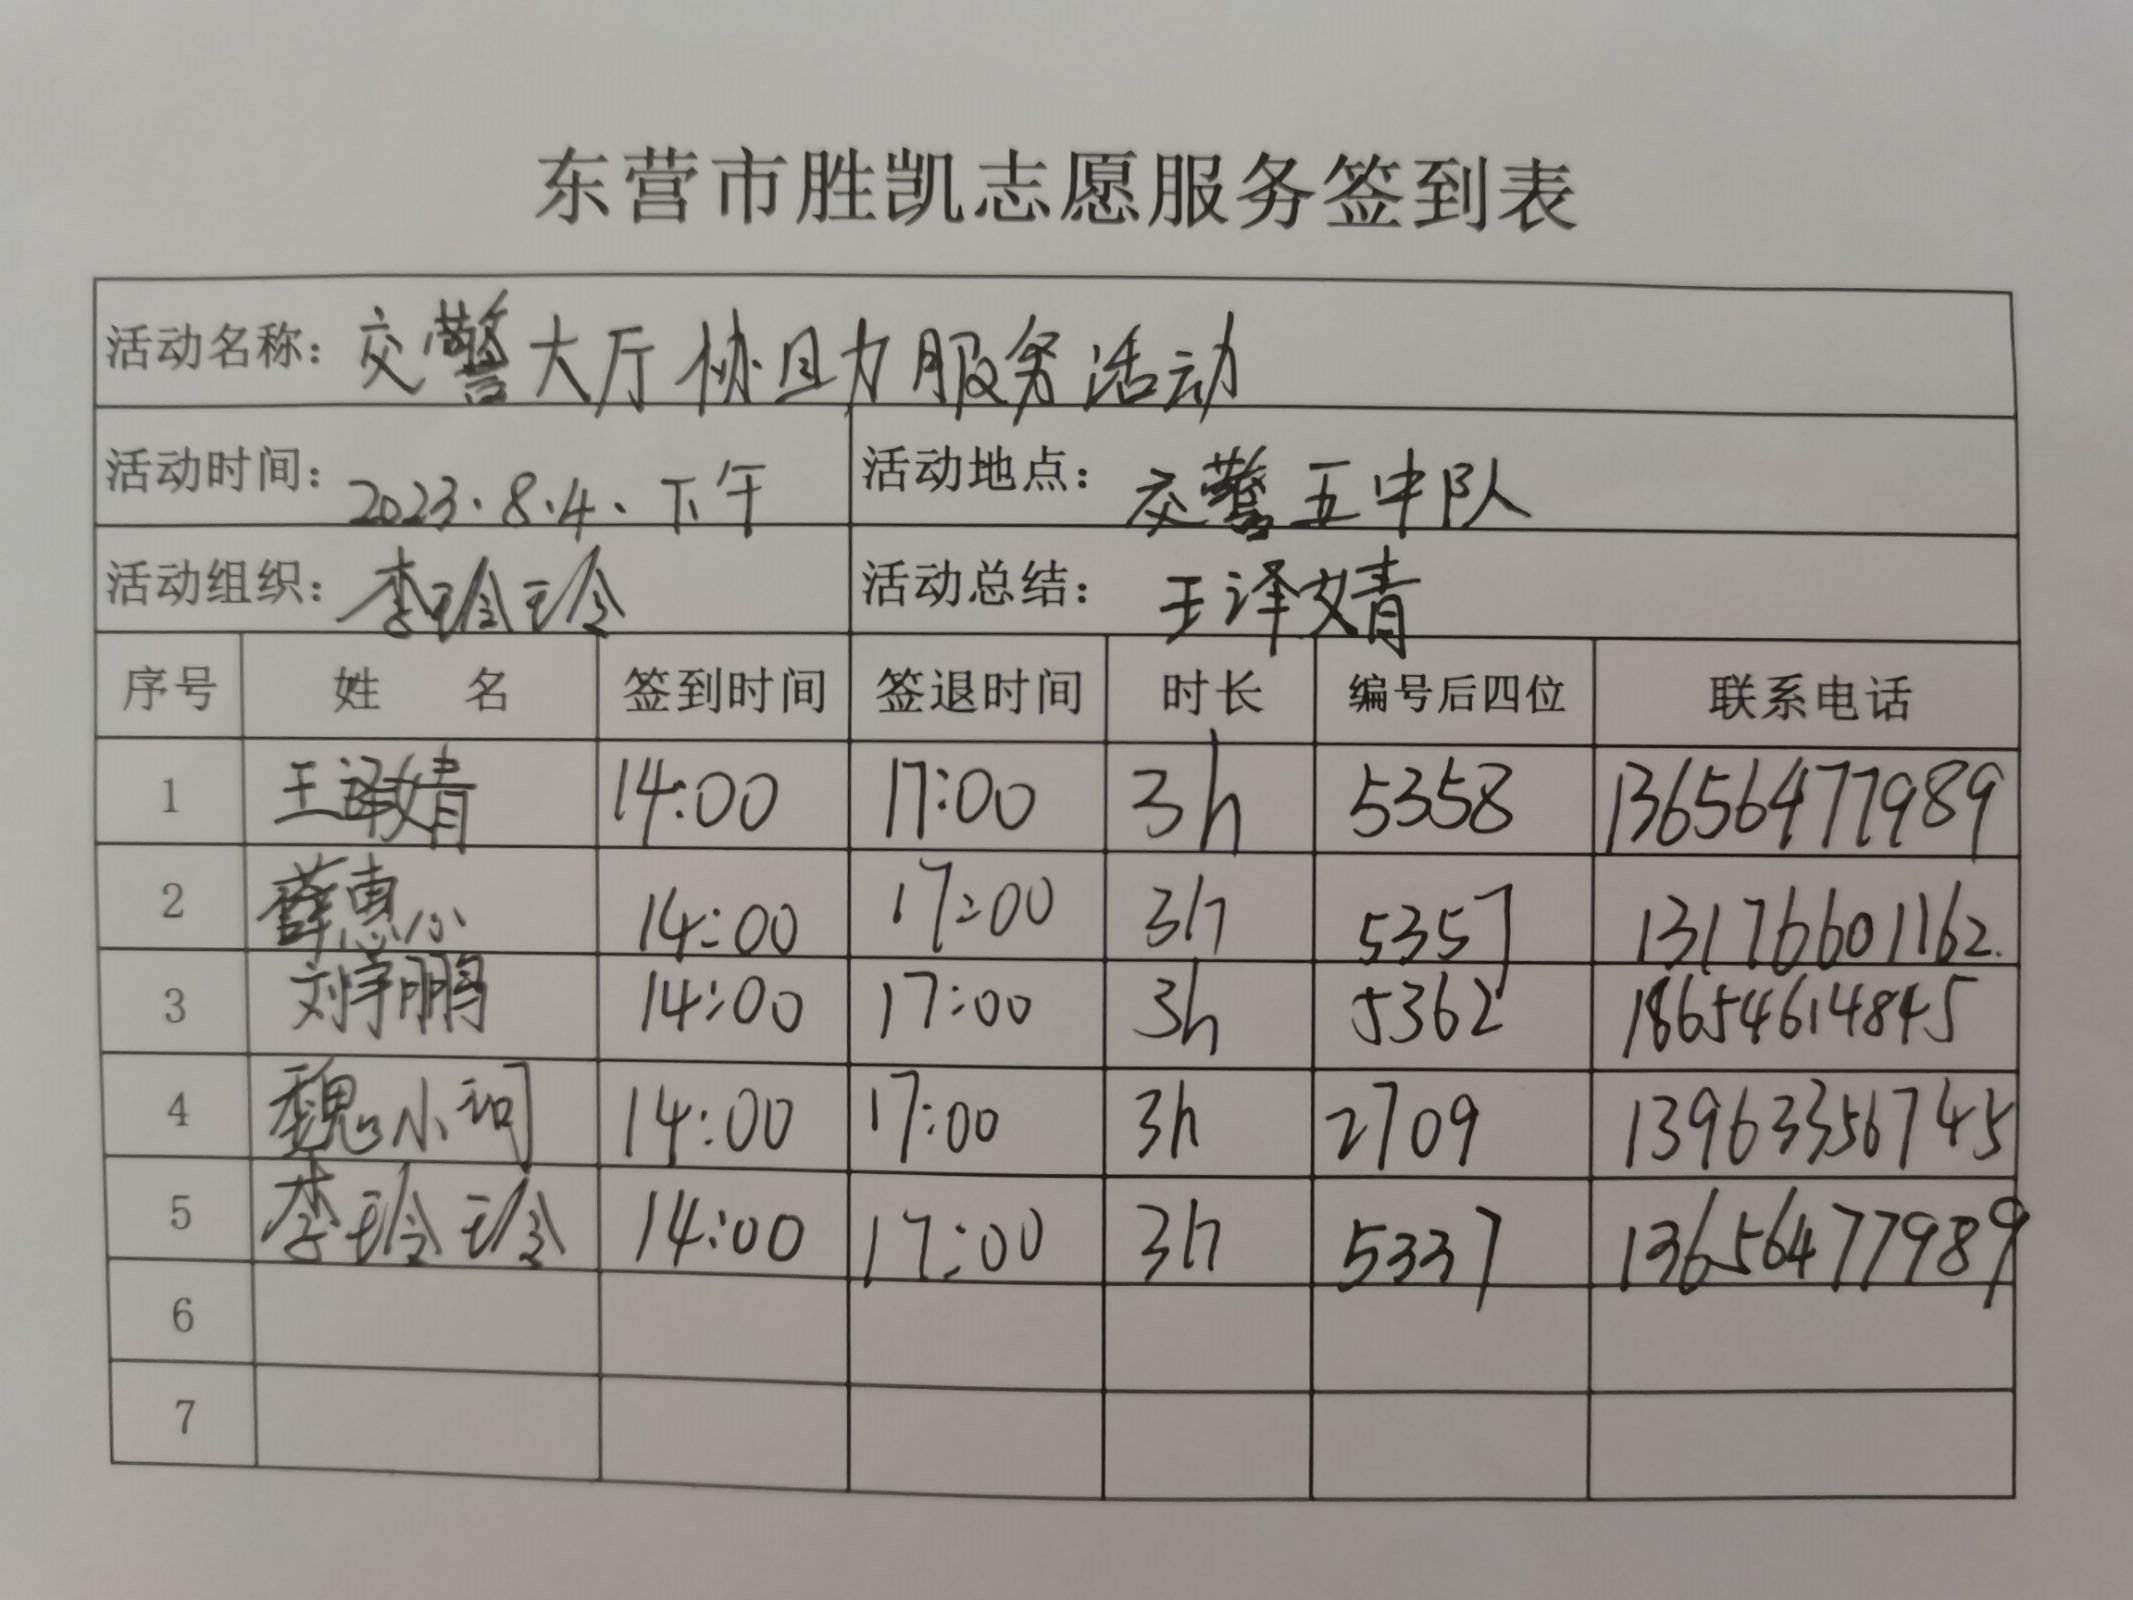 东营市胜凯志愿服务签到表
活动名称：交警大厅协助服务活动
活动时间：2023.8.4.下午 活动地点：交警五中队
活动组织：李玲玲 活动总结：王泽婧
序号 姓 名 签到时间 签退时间 时长 编号后四位 联系电话
1 王泽婧 14:00 17:00 3h 5358 13656477989
2 薛惠心 14:00 17:00 3h 5357 13176601162.
3 刘宇鹏 14:00 17:00 3h 5362 18654614845
4 魏小诃 14:00 17:00 3h 2709 13963356745
5 李玲玲 14:00 17:00 3h 5337 13656477989
6
7